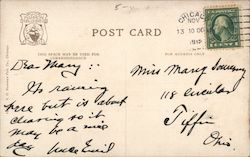 CHICAGO
NOV
POST CARD
13 10 00
1912
THIS SPACE MAY BE USED FOR
CORRESPONDENCE
FOR ADDRESS ONLY
Dear Mary:
Its raining
here but is about
clearing so it
may be a nice
day Uncle Emil
Miss Mary
118 Circular
Tiffin
Ohio.